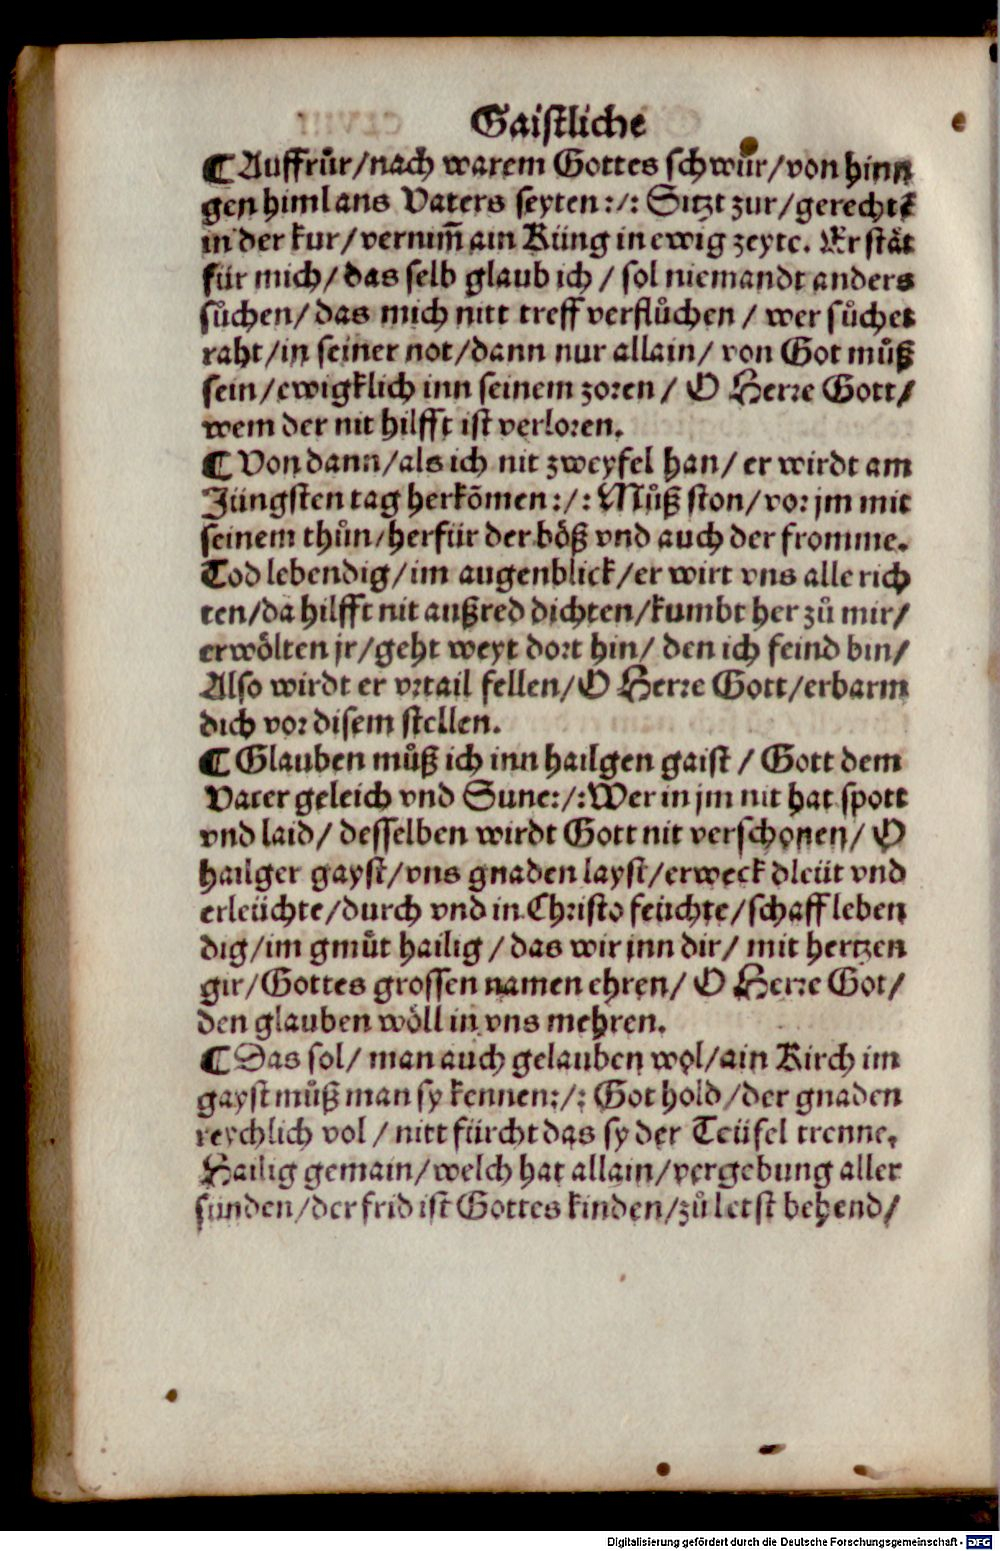 Gaistliche
¶ Auffrůr/nach warem Gottes schwůr/von hinn
gen himl ans Vaters seyten:/: Sitzt zur/gerechte
in der kur/vernim̃ ain Küng in ewig zeyte. Er stät
für mich/das selb glaub ich / sol niemandt anders
sůchen/das mich nitt treff verflůchen / wer sůchet
raht/in seiner not/dann nur allain/ von Got můß
sein/ewigklich inn seinem zoren/ O Herre Gott/
wem der nit hilfft ist verloren.
¶ Von dann/als ich nit zweyfel han/ er wirdt am
Jüngsten tag herkõmen:/: Můß ston/vor jm mit
seinem thůn/herfür der böß vnd auch der fromme.
Tod lebendig/im augenblick/er wirt vns alle rich
ten/da hilfft nit außred dichten/kumbt her zů mir/
erwölten jr/geht weyt dort hin/ den ich feind bin/
Also wirdt er vrtail fellen/O Herre Gott/erbarm
dich vor disem stellen.
¶ Glauben můß ich inn hailgen gaist / Gott dem
Vater geleich vnd Sune:/:Wer in jm nit hat spott
vnd laid/ desselben wirdt Gott nit verschonen/ O
hailger gayst/vns gnaden layst/erweck dleüt vnd
erleüchte/durch vnd in Christo feüchte/schaff leben
dig/im gmůt hailig /das wir inn dir/ mit hertzen
gir/Gottes grossen namen ehren/ O Herre Got/
den glauben wöll in vns mehren.
¶ Das sol/ man auch gelauben wol/ain Kirch im
gayst můß man sy kennen:/: Got hold/der gnaden
reychlich vol / nitt fürcht das sy der Teüfel trenne.
Hailig gemain/welch hat allain/vergebung aller
sünden/der frid ist Gottes kinden/zů letst behend/
Digitalisierung gefördert durch die Deutsche Forschungsgemeinschaft - DFG